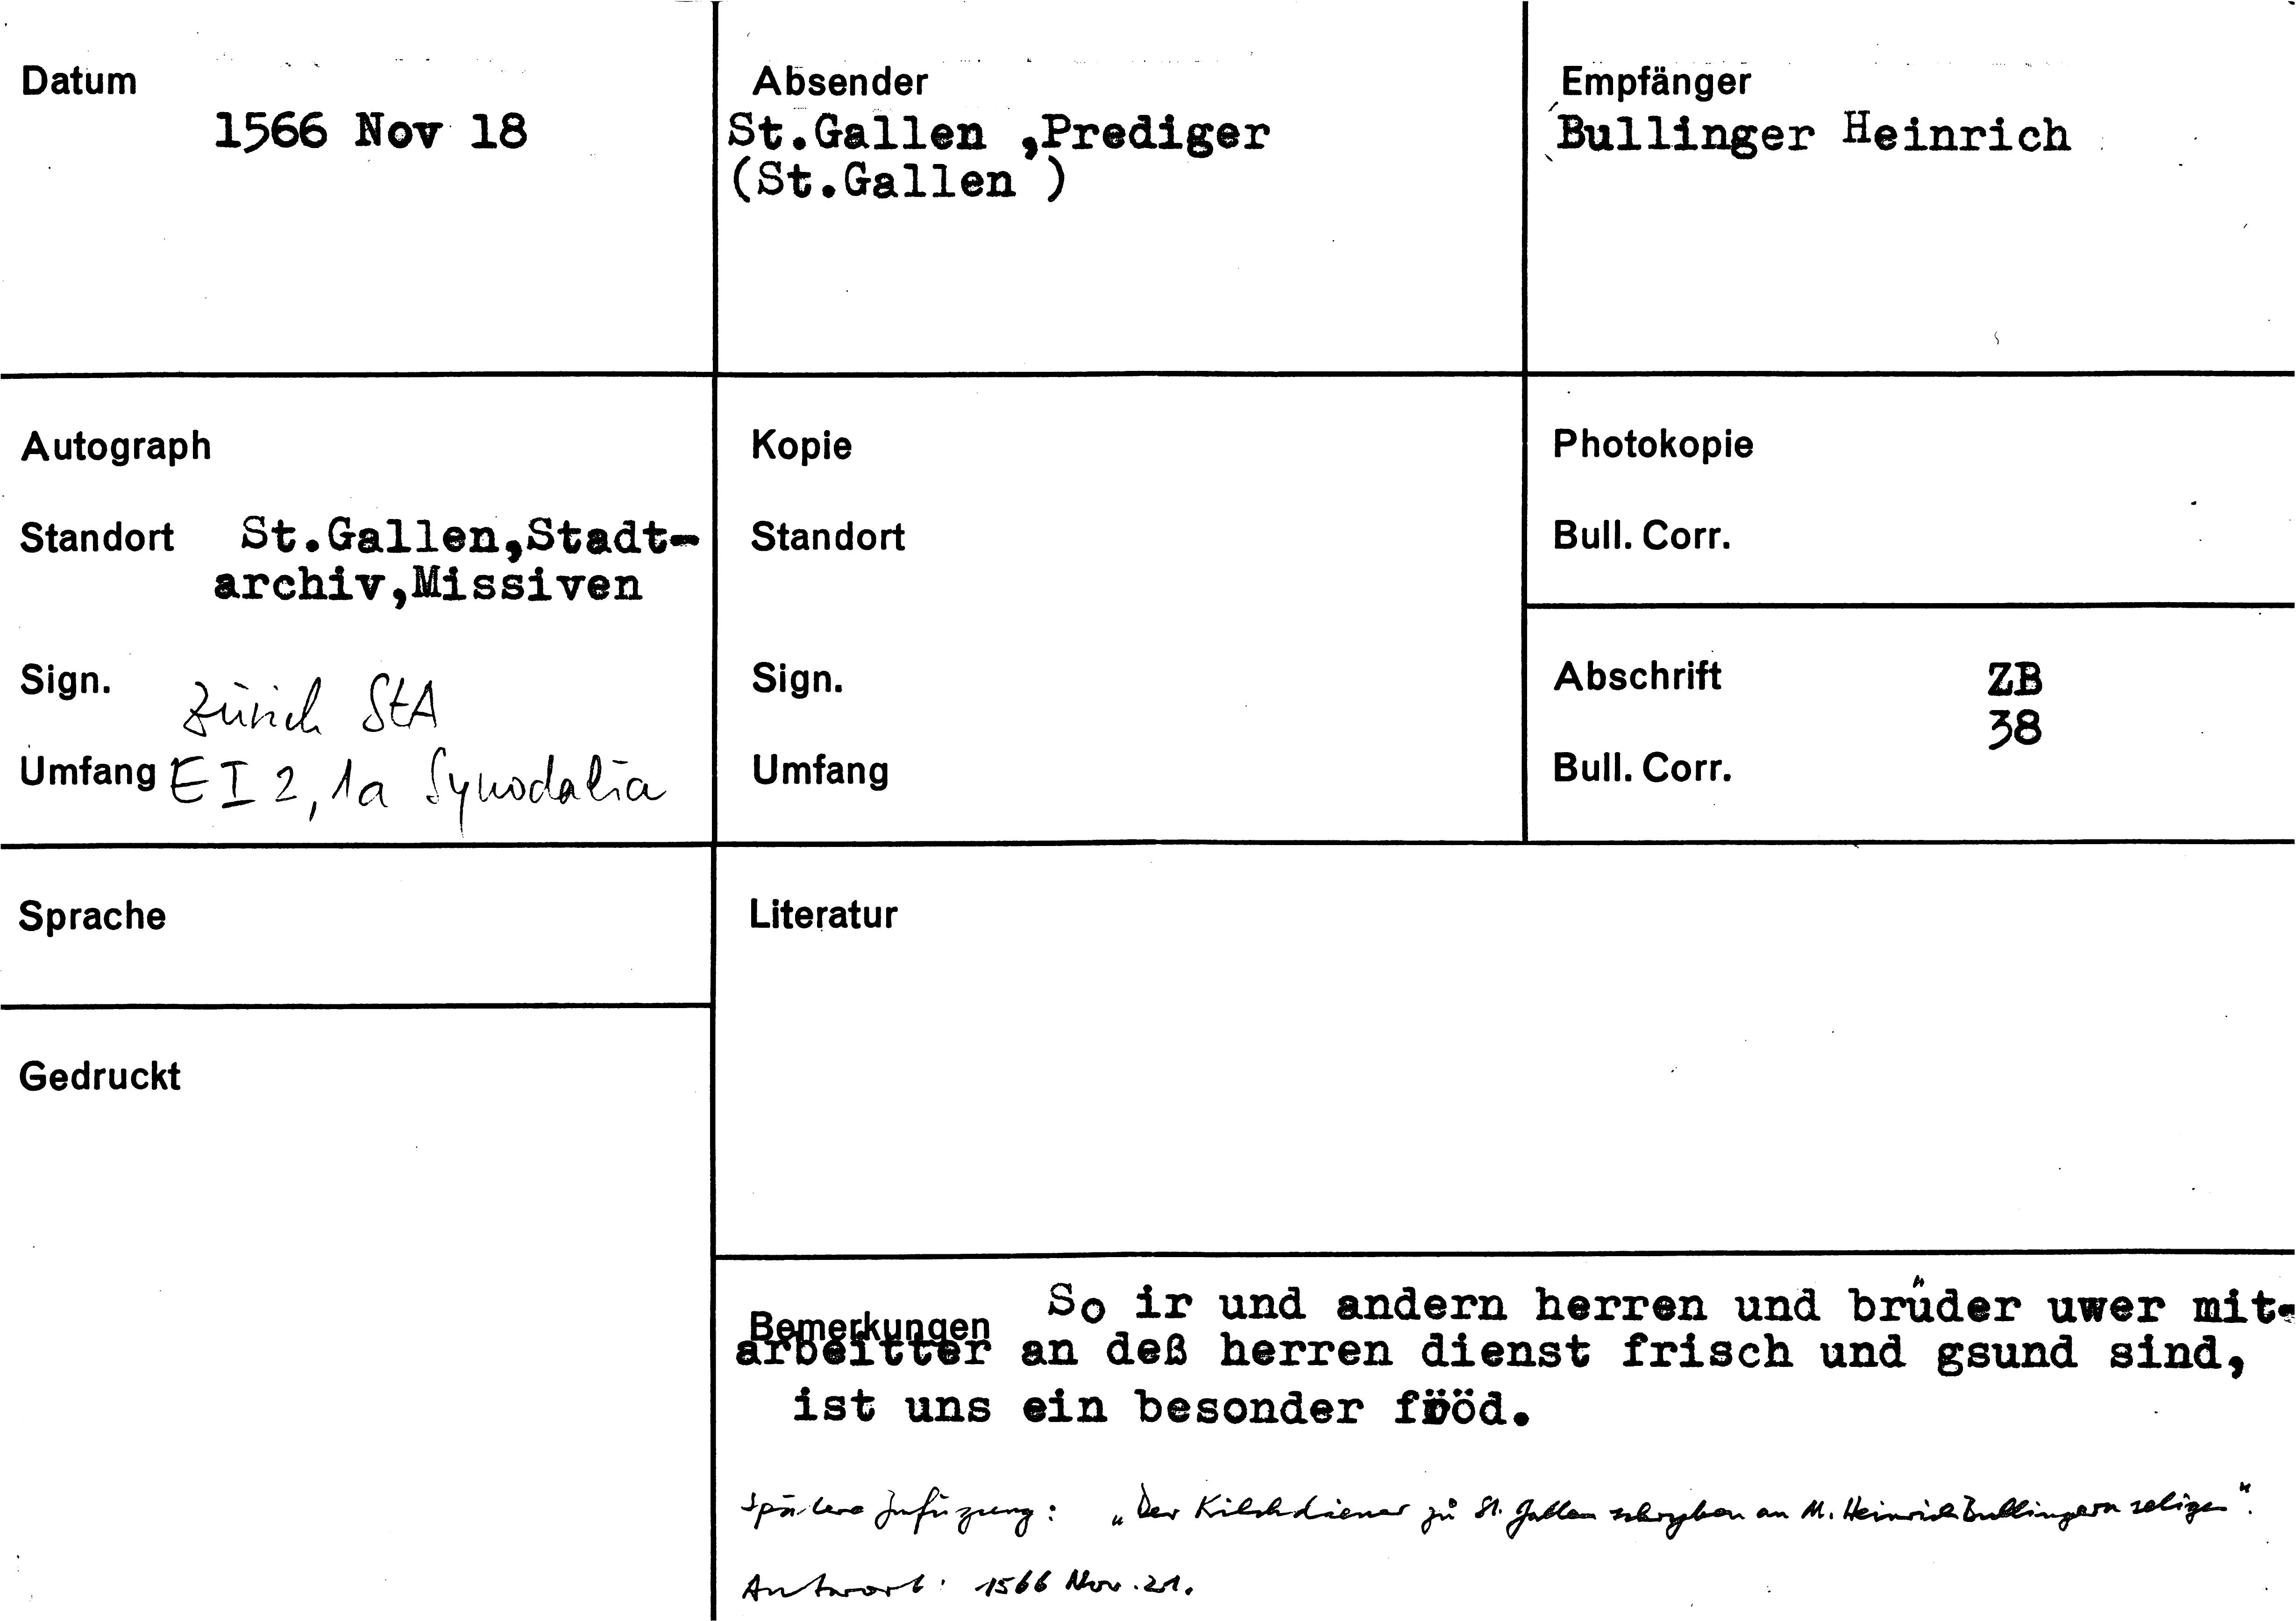 Datum
1566 Nov 18
Absender
St.Gallen ,Prediger
(St.Gallen )
Empfänger
Bullinger Heinrich
Autograph
Standort St.Gallen,Stadt-
archiv,Missiven
Sign. Zürich StA
Umfang E I 2, 1a Synodalia
Kopie
Standort
Sign.
Umfang
Photokopie
Bull. Corr.
Abschrift ZB
38
Bull. Corr.
Sprache
Gedruckt
Literatur
Bemerkungen So ir und andern herren und brüder uwer mit-
arbeitter an deß herren dienst frisch und gsund sind,
ist uns ein besonder fröd.
Spätere Zufügung: „Der Kilchdiener zů St. Gallen schryben an M. Heinrich Bullingern seligen".
Antwort: 1566 Nov. 21.